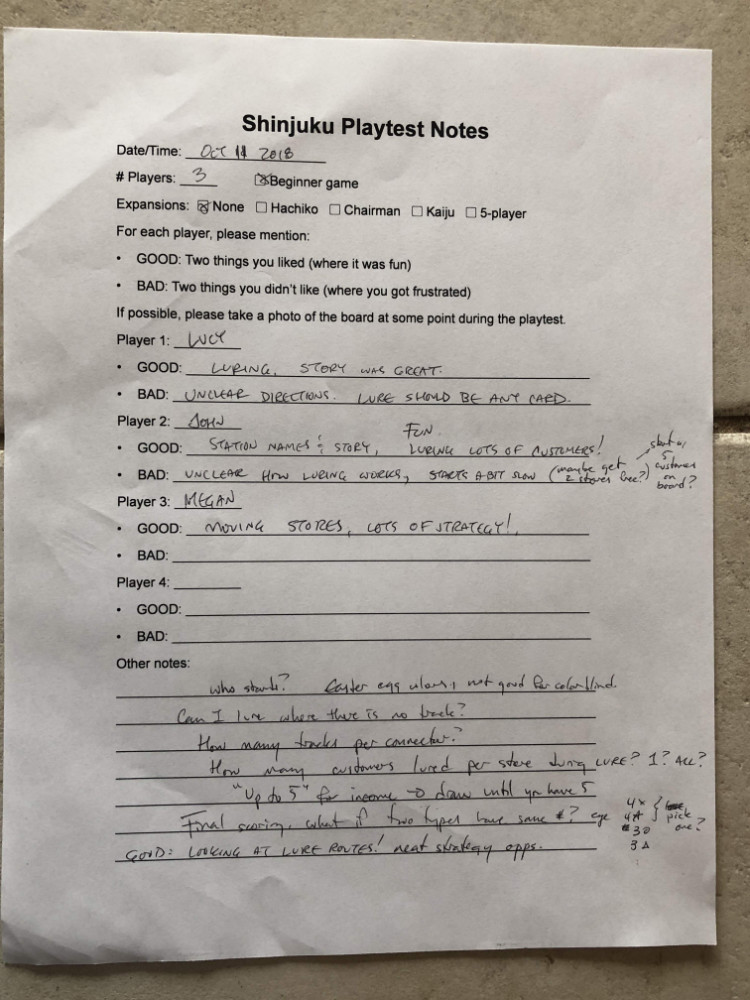 Shinjuku Playtest Notes
Date/Time: OCT 11 2018
# Players: 3 ☒Beginner game
Expansions: ☒ None ☐ Hachiko ☐ Chairman ☐ Kaiju ☐ 5-player
For each player, please mention:
• GOOD: Two things you liked (where it was fun)
• BAD: Two things you didn't like (where you got frustrated)
If possible, please take a photo of the board at some point during the playtest.
Player 1: LUCY
• GOOD: LURING, STORY WAS GREAT.
• BAD: UNCLEAR DIRECTIONS. LURE SHOULD BE ANY CARD.
Player 2: JOHN
• GOOD: STATION NAMES & STORY, FUN LURING LOTS OF CUSTOMERS!
• BAD: UNCLEAR HOW LURING WORKS, STARTS A BIT SLOW (maybe get 2 stores free?) start w/ 5 customers on board?
Player 3: MEGAN
• GOOD: MOVING STORES, LOTS OF STRATEGY!
• BAD:
Player 4:
• GOOD:
• BAD:
Other notes:
who starts? Easter egg colours, not good for colorblind.
Can I lure where there is no track?
How many tracks per connector?
How many customers lured per store during LURE? 1? ALL?
"Up to 5" for income → draw until you have 5
Final scoring, what if two types have same #? eg
4×
4★
3
3 △
pick one?
GOOD: LOOKING AT LURE ROUTES! neat strategy opps.